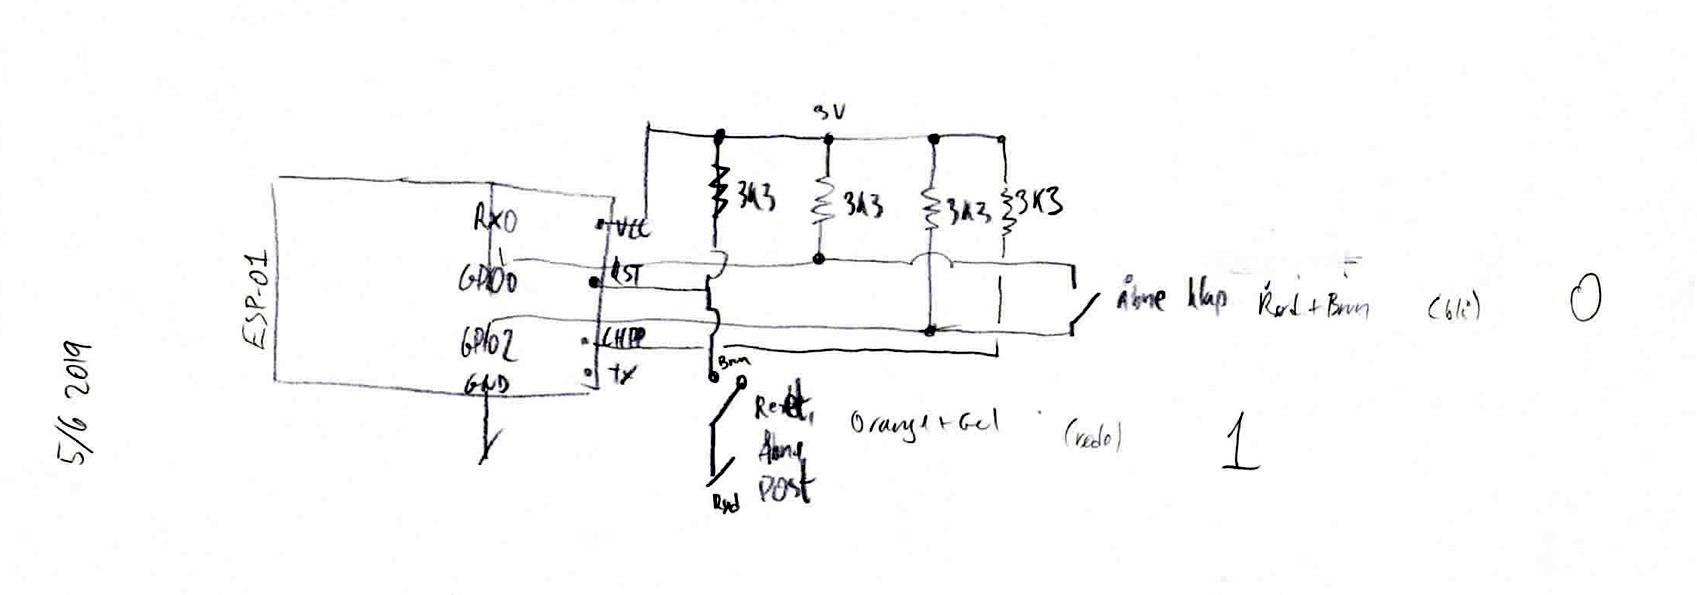 3V
3K3
3K3
3K3
3K3
RX0
VCC
GPIO0
RST
ESP-01
Åbne klap
Rød + Brun
(blå)
0
GPIO2
CHPD
TX
GND
Brun
5/6 2019
Reset,
Åbne
Post
Orange + Gul
1
Rød